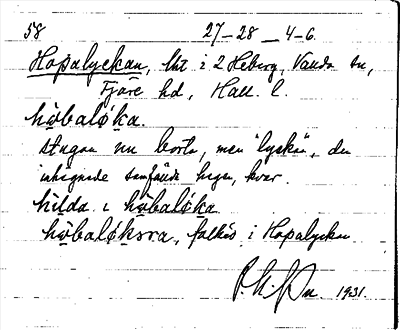 58 27-28 _ 4-6.
Hopalyckan, lht i 2 Heberg, Vanda sn,
Fjäre hd, Hall. l.
họbalø̣ka.
stugan nu borta, men "lyckan", den
inhägnade hagen, kvar.
hịlda i họbalø̣ka
họbalø̣ksra, folket i Hopalyckan
1931.